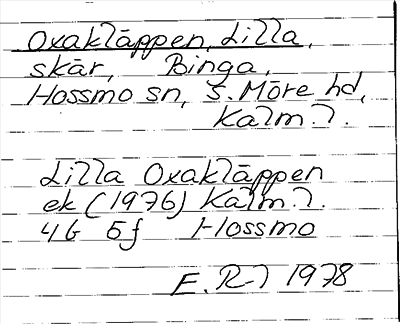 Oxakläppen, Lilla,
skär, Binga,
Hossmo sn, S. Möre hd,
Kalm. l.
Lilla Oxakläppen
ek (1976) Kalm. l.
4G 5f Hossmo
1978